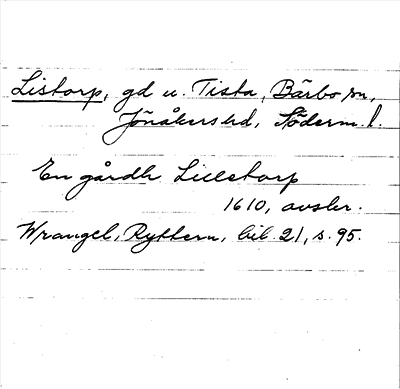 Listorp, gd u. Tista, Bärbo sn,
Jönåkers hd, Söderm. l.
En gårdh Liilstorp
1610, avskr.
Wrangel, Ryttern, bil. 21, s. 95.